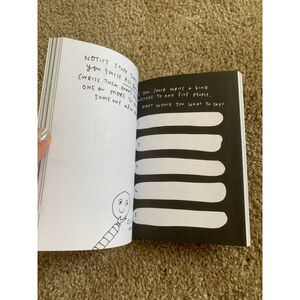 NOTICE
YOU SMILE
(WRITE THEM
ONE OR MORE TO
SOMEONE
YOU COULD WRITE A KIND
MESSAGE TO ANY FIVE PEOPLE,
WHAT WOULD YOU WANT TO SAY?